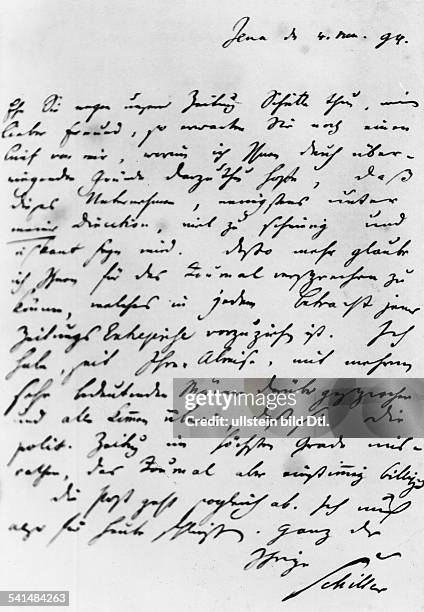 Jena d. 4. Nov. 94.
Ehe Sie wegen unserer Zeitung Schritte thun, mein
lieber Freund, so erwarten Sie noch einen
Brief von mir, worin ich Ihnen durch über-
wiegende Gründe darzuthun hoffe, daß
dieses Unternehmen, wenigstens unter
meiner Direction, viel zu schwierig und
riskant seyn wird. Desto mehr glaube
ich Ihnen für das Journal versprechen zu
können, welches in jedem Betracht jener
Zeitungs Entreprise vorzuziehen ist. Ich
habe, seit Ihrer Abreise, mit mehrern
sehr bedeutenden Männern darüber gesprochen
und alle kommen überein, daß sie die
polit. Zeitung im höchsten Grade mis-
rathen, das Journal aber einstimmig billigen
die Post geht sogleich ab. Ich muß
also für heute schließen. Ganz der
Ihrige
Schiller
gettyimages
Credit: ullstein bild Dtl.
541484263